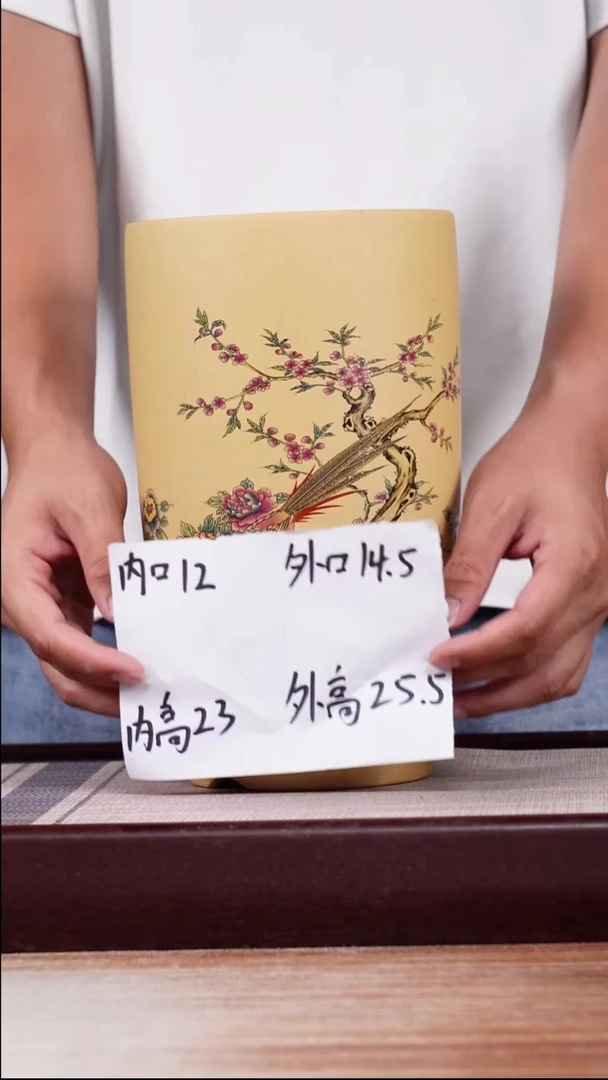 内口12 外口14.5
内高23 外高25.5